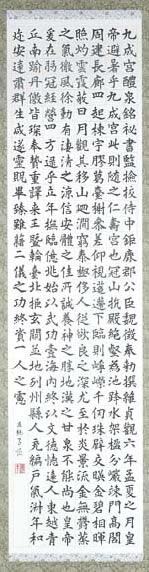 九成宮醴泉銘秘書監檢挍侍中鉅鹿郡公臣魏徵奉勅撰維貞觀六年孟夏之月皇
帝避暑乎九成宮此則隨之仁壽宮也冠山抗殿絕壑為池跨水架楹分巖竦闕高閣
周建長廊四起棟宇膠葛臺榭參差仰視下臨則崢嶸千仞珠璧交暎金碧相暉
照灼雲霞蔽虧日月觀其移山迴澗窮泰極侈以人從欲良足深尤至於炎景流金無鬱蒸
之氣微風徐動有淒清之涼信安體之佳所誠養神之勝地漢之甘泉不能尚也皇帝
爰在弱冠經營四方逮乎立年撫臨億兆始以武功壹海內終以文德懷遠人東越青
丘南踰丹徼皆獻琛奉贄重譯來王西暨輪臺北拒玄闕並地列州縣人充編戶氣淑年和
迩安遠肅群生咸遂靈貺畢臻雖藉二儀之功終資一人之慮